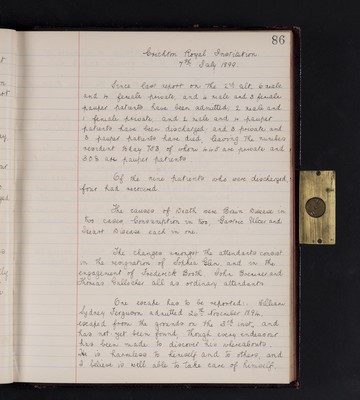 86
Crichton Royal Institution
7th July 1890.
Since last report on the 2nd ult. 6 male
and 4 female private, and 6 male and 8 female
pauper patients have been admitted; 2 male and
1 female private, and 2 male and 4 pauper
patients have been discharged and 2 private and
3 pauper patients have died, leaving the number
resident today of whom are private and
are pauper patients.
Of the nine patients who were discharged,
four had recovered.
The causes of Death were Brain Disease in
two cases, Consumption in two, Gastric Ulcer and
Heart Disease each in one.
The changes amongst the attendants consist
in the resignation of Sophia and in the
engagement of Frederick Booth, John and
Thomas Gallocher all as ordinary attendants.
One escape has to be reported: William
Sydney Ferguson admitted 20th November 1884,
escaped from the grounds on the 3rd inst, and
has not yet been found, though every endeavour
has been made to discover his whereabouts.
He is harmless to himself and to others, and
I believe is well able to take care of himself.